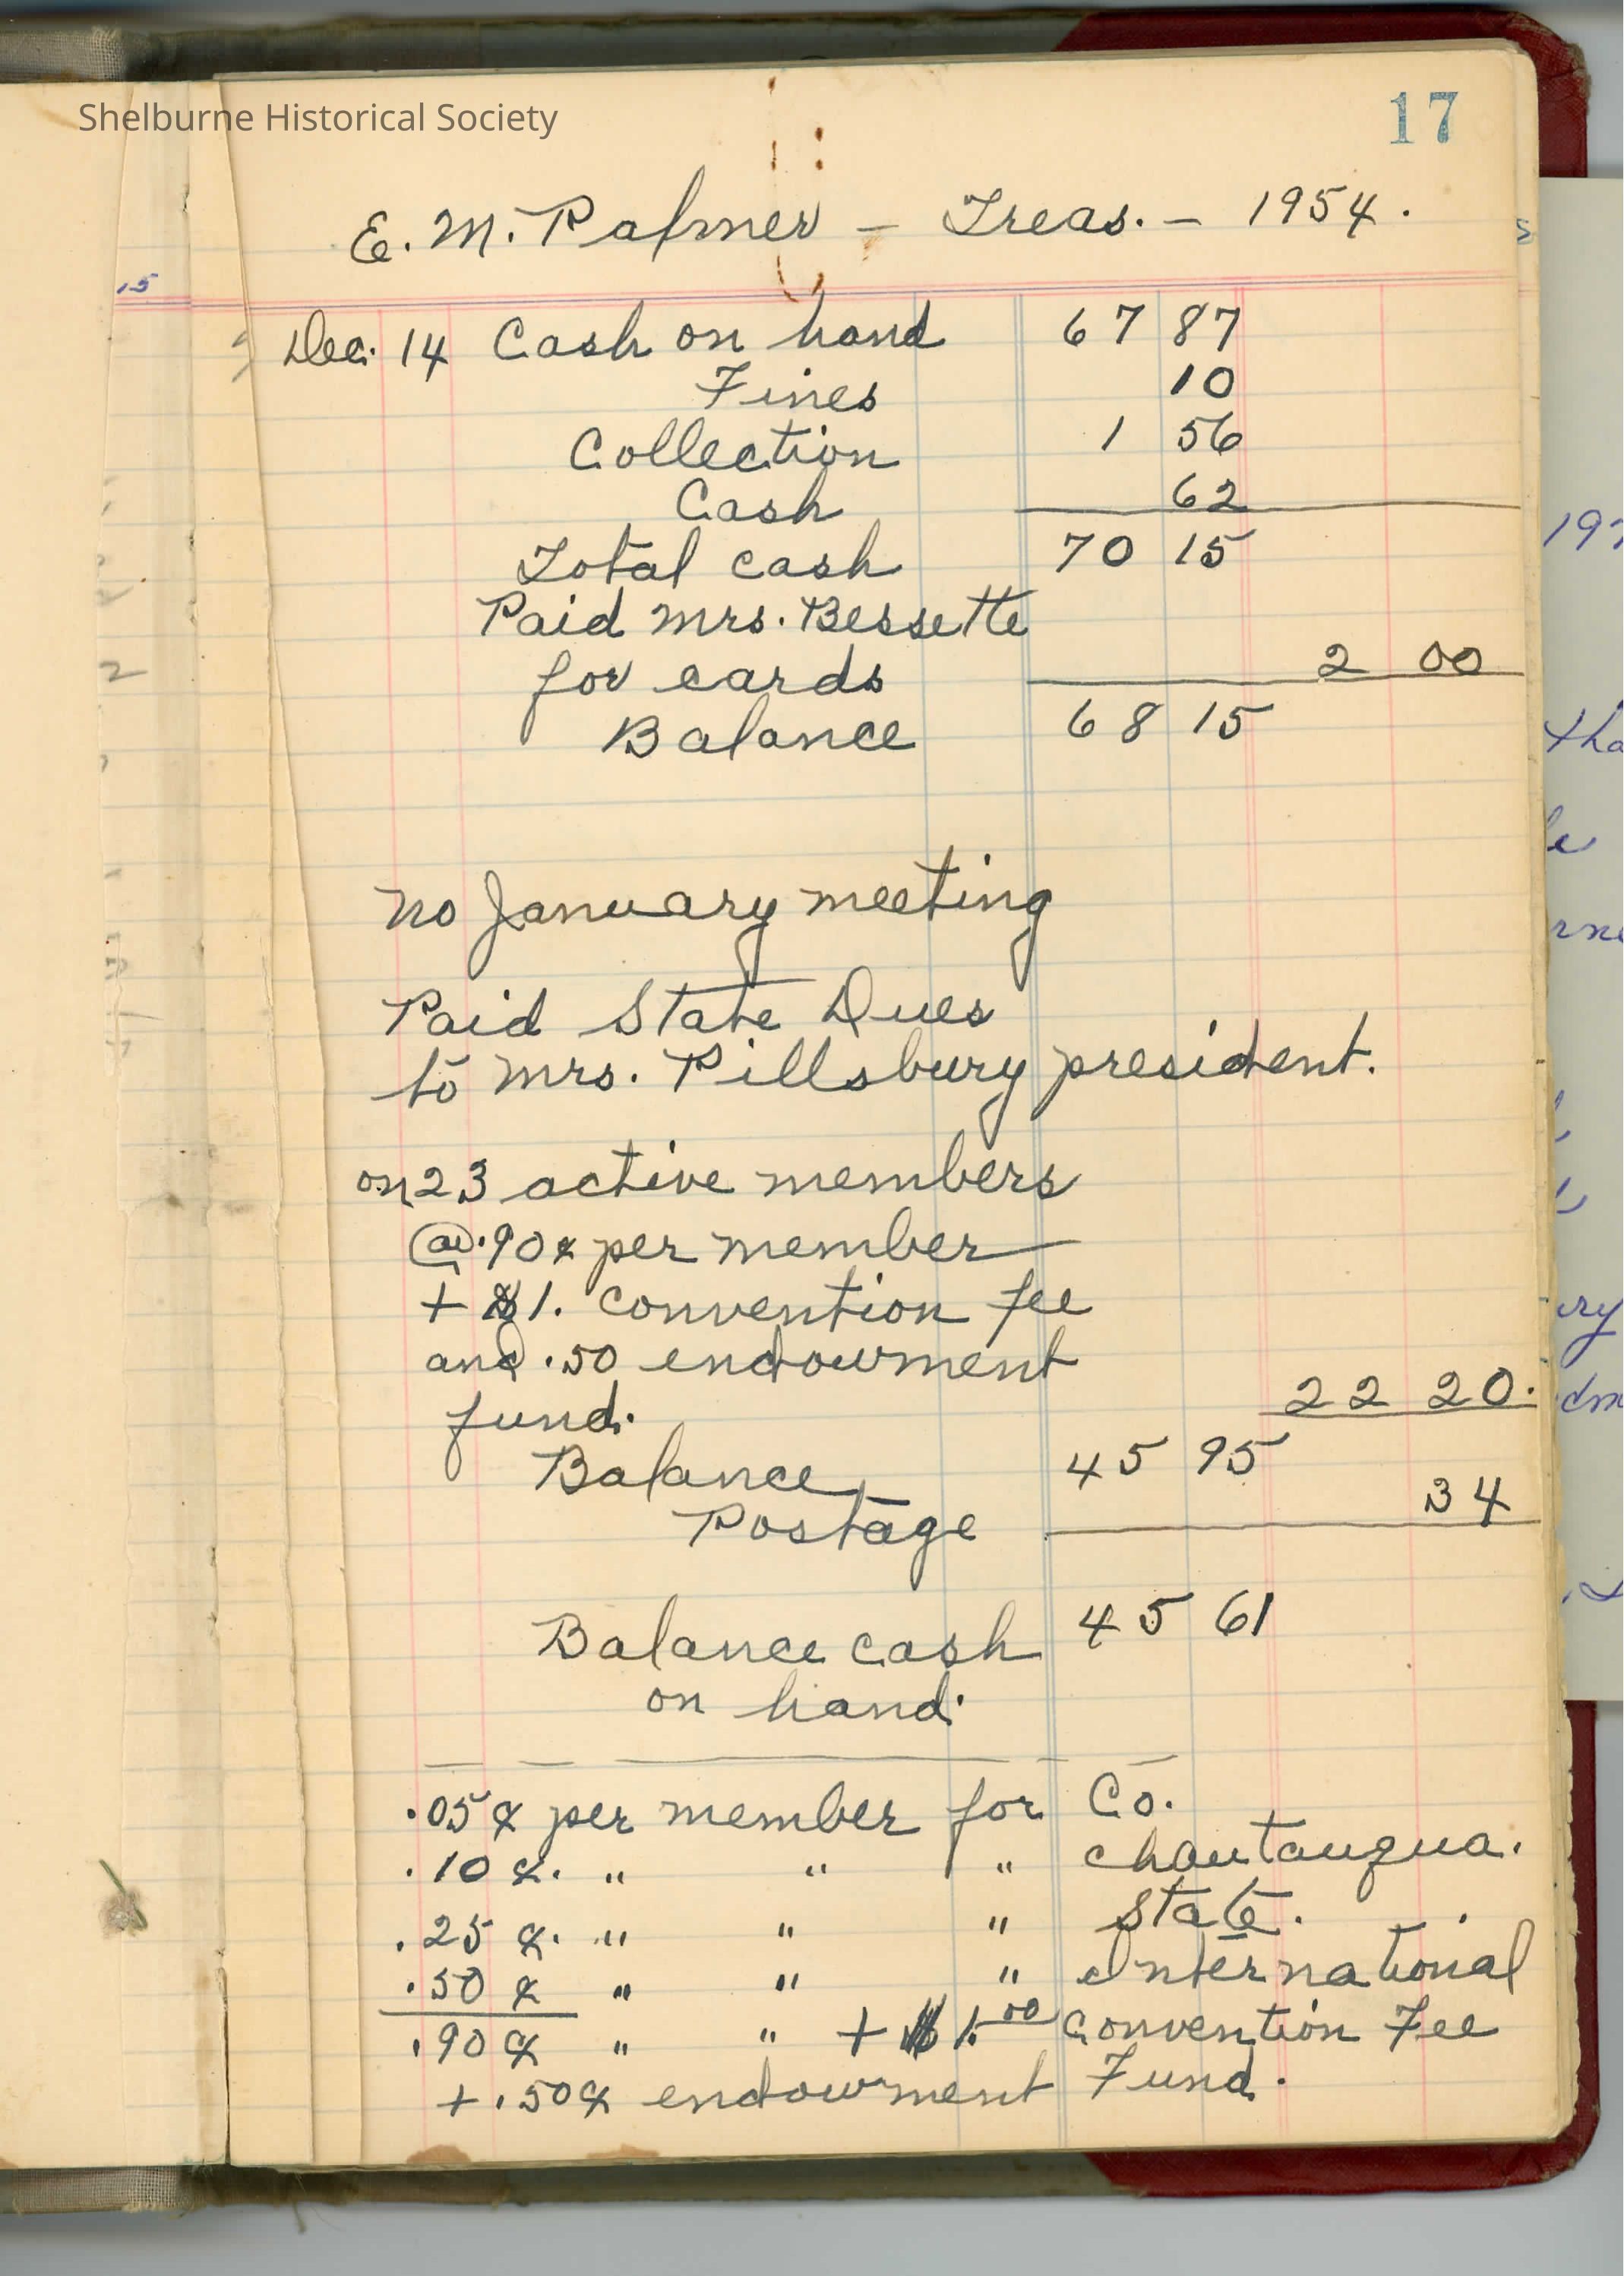 Shelburne Historical Society
17
E. M. Palmer - Treas. - 1954.
15
Dec. 14 Cash on hand 67 87
Fines 10
Collection 1 56
Cash 62
Total cash 70 15
Paid Mrs. Bessette
for cards 2 00
Balance 68 15
No January meeting
Paid State Dues
to Mrs. Pillsbury president.
on 23 active members
@ .90¢ per member
+ $1. convention fee
and .50 endowment
fund. 22 20.
Balance 45 95
Postage 34
Balance cash 45 61
on hand.
.05¢ per member for Co.
.10¢. " " " Chautauqua.
.25¢. " " " State.
.50¢ " " " International
.90¢ " " + $1.00 Convention Fee
+ .50¢ endowment Fund.